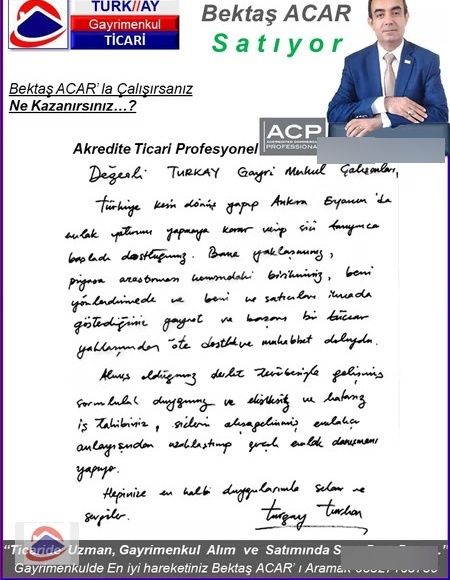 TURK//AY
Gayrimenkul
TİCARİ
Bektaş ACAR
Satıyor
Bektaş ACAR' la Çalışırsanız
Ne Kazanırsınız…?
ACP
ACCREDITED COMMERCIAL
PROFESSIONAL
Akredite Ticari Profesyonel
Değerli TURKAY Gayri Menkul Çalışanları,
Türkiye kesin dönüş yapıp Ankara Eryaman'da
emlak yatırımı yapmaya karar verip sizi tanıyınca
başladı dostluğumuz. Bana yaklaşımınız,
piyasa araştırması konusundaki birikiminiz, beni
yönlendirmede ve beni ve satıcıları iknada
gösterdiğiniz gayret ve başarı bir tüccar
yaklaşımından öte dostluk ve muhabbet doluydu.
Almış olduğunuz devlet terübesiyle gelişmiş
sorumluluk duygunuz ve eksiksiz ve hatasız
iş takibiniz, sizleri alışagelinmiş emlakçı
anlayışından uzaklaştırıp gerçek emlak danışmanı
yapıyor.
Hepinize en kalbi duygularımla selam ve
sevgiler.
Turgay Turhan
"Ticaride Uzman, Gayrimenkul Alım ve Satımında
Gayrimenkulde En iyi hareketiniz Bektaş ACAR' ı